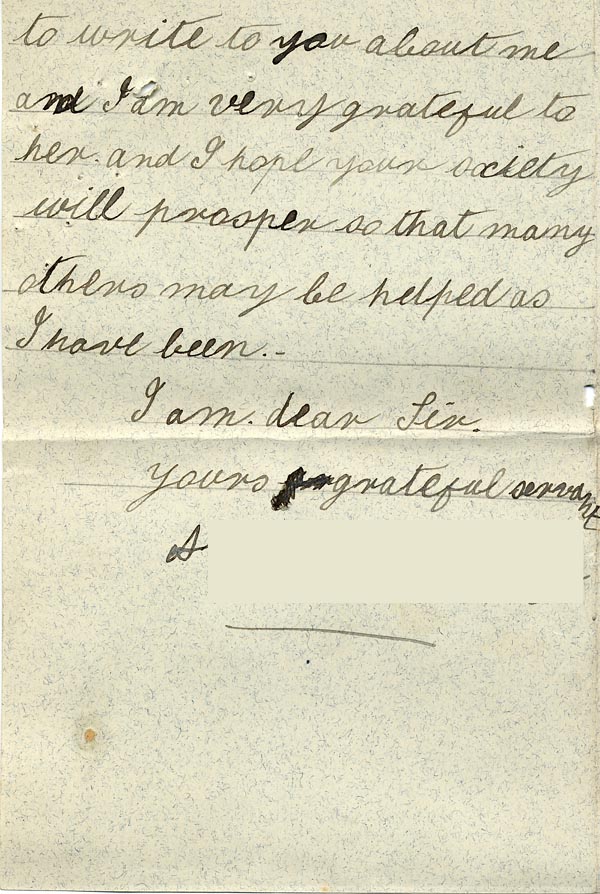 to write to you about me
and I am very grateful to
her. and I hope your society
will prosper so that many
others may be helped as
I have been.-
I am. dear Sir.
Yours grateful servant
A